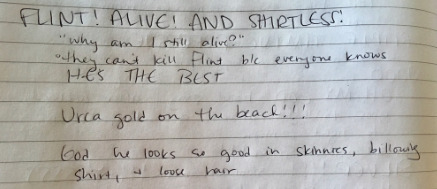 FLINT! ALIVE! AND SHIRTLESS!
"why am I still alive?"
"they can't kill Flint b/c everyone knows
HE'S THE BEST
Urca gold on the beach!!!
God he looks so good in skinnies, billowing
shirt, & loose hair